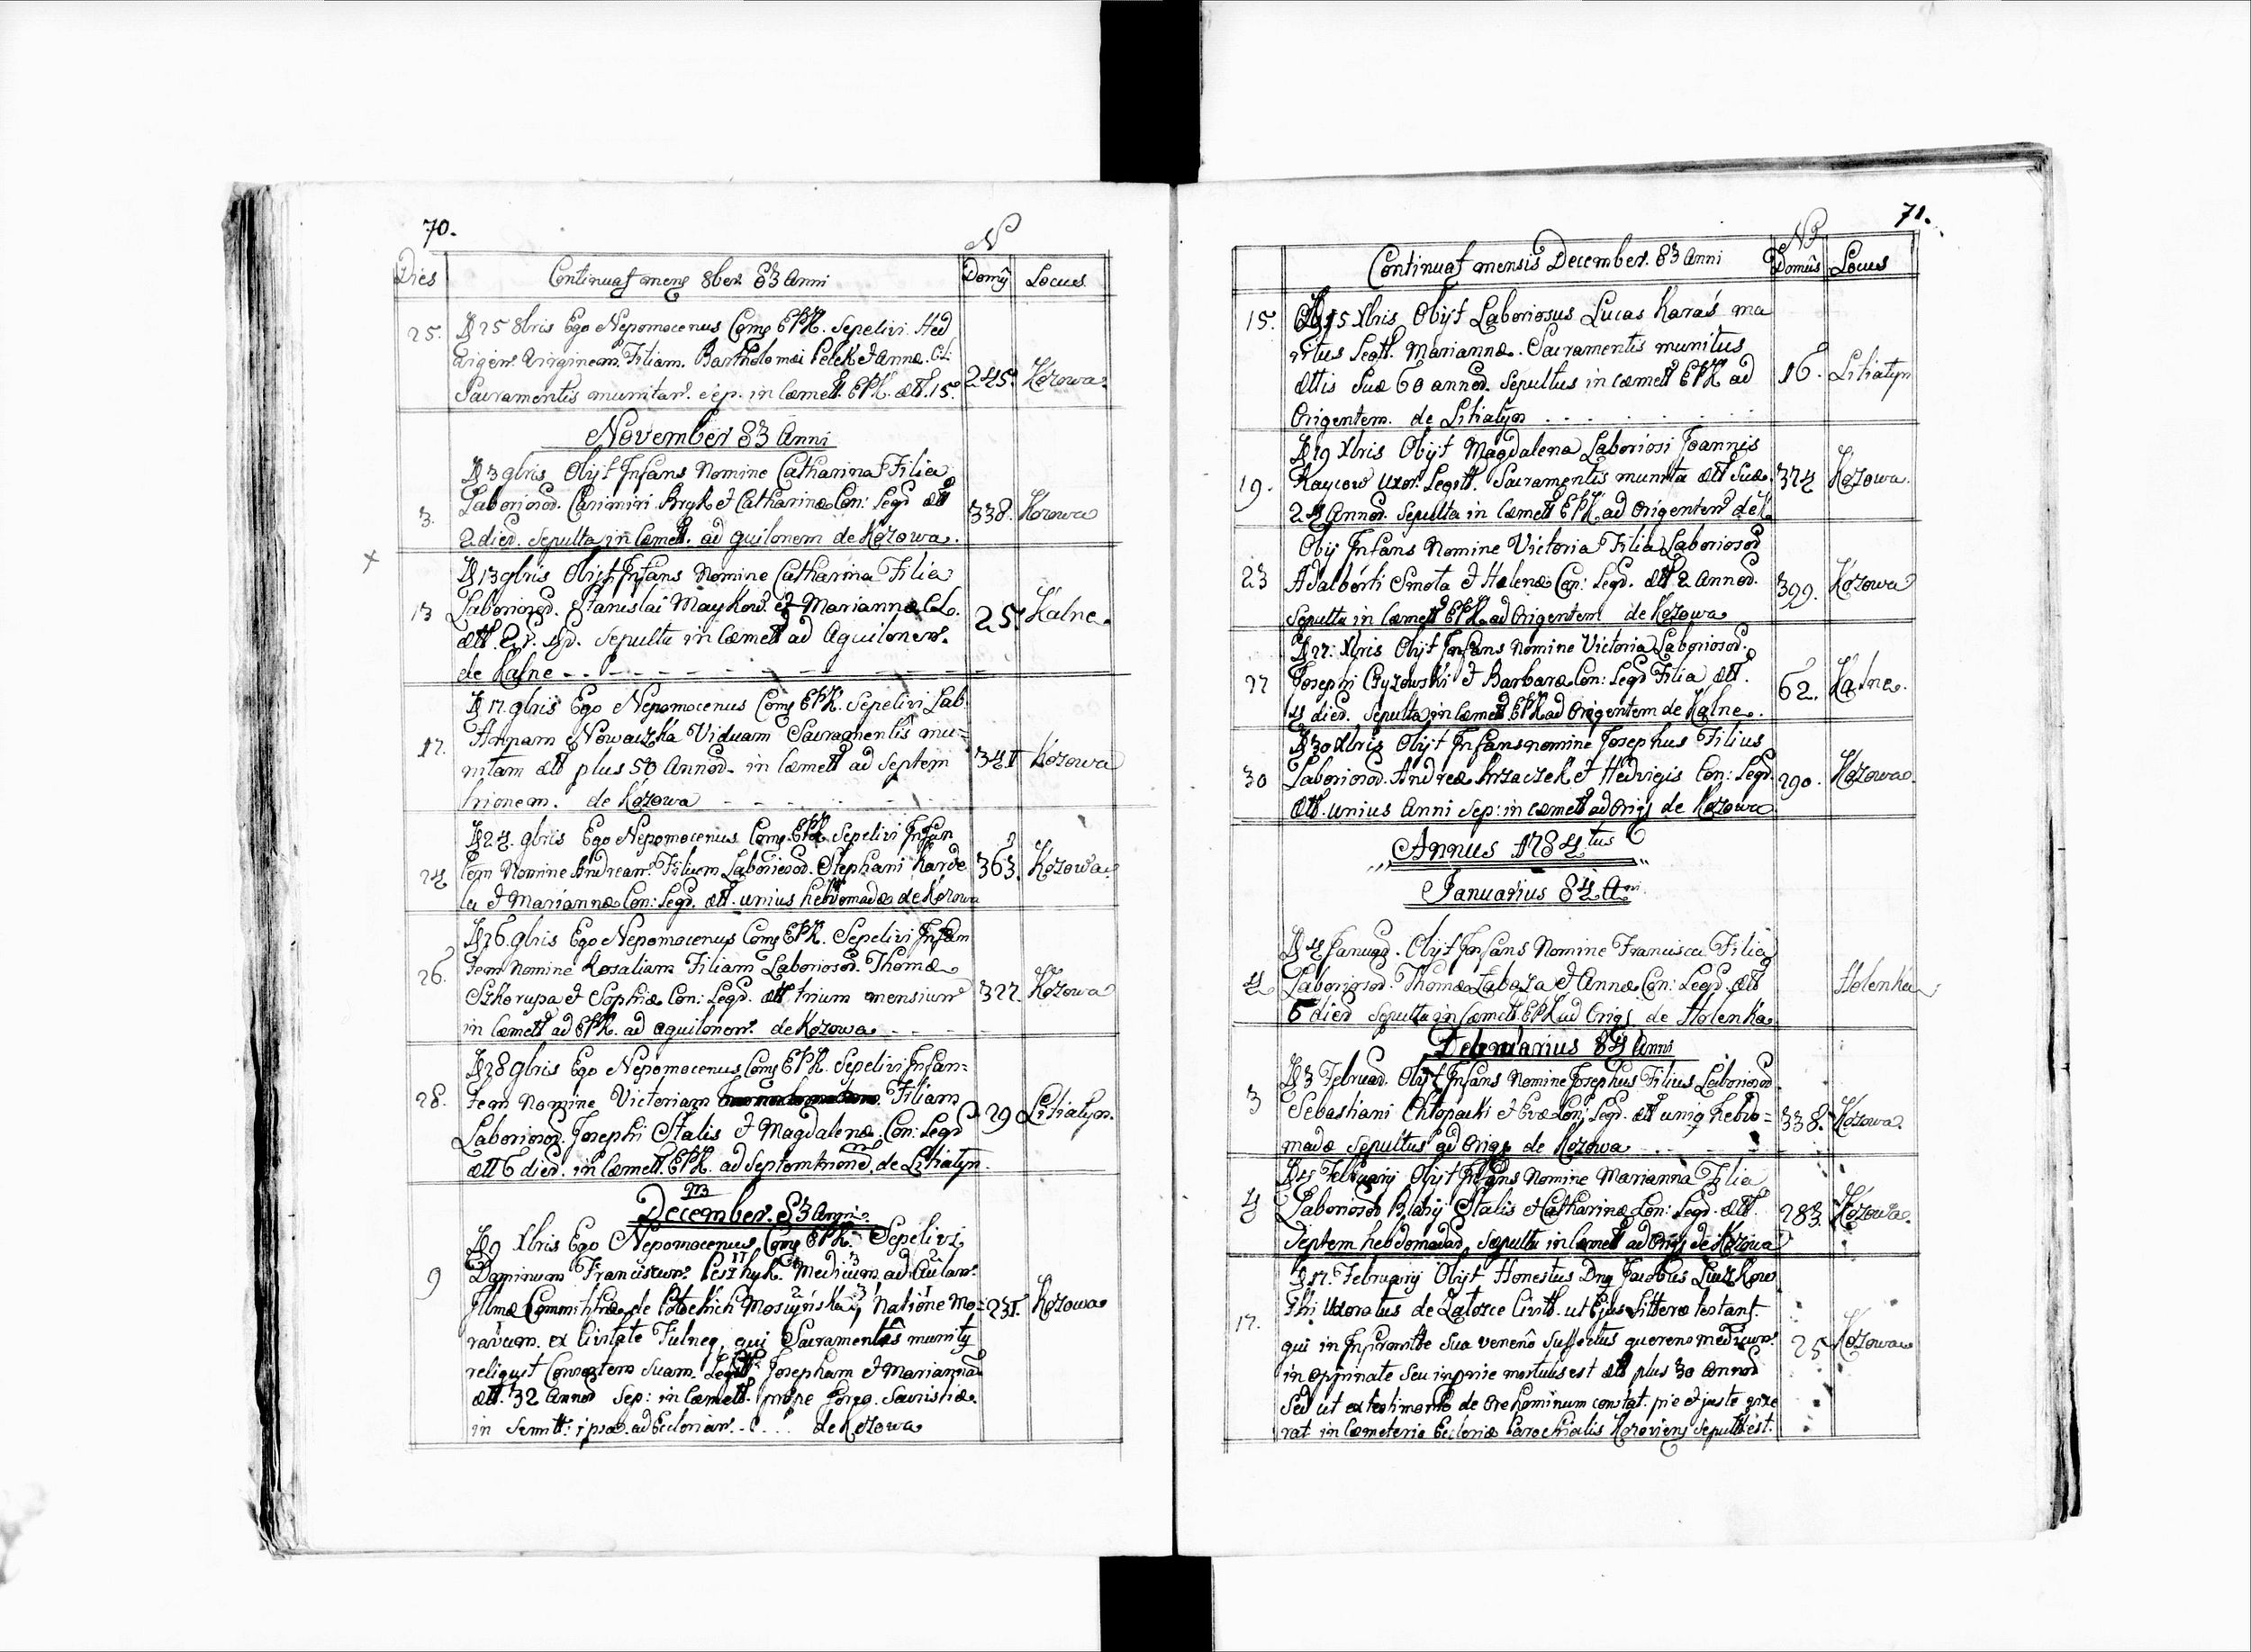 70.
N
Dies Continuat mens 8ber 83 Anni Domy Locus
25. D 25 8bris Ego Nepomocenus Coms EPK. Sepelivi Hed
vigem Virginem Filiam Bartholomei Pelck et Annæ C:L:
Sacramentis munitam. sep. in Cæmett. EPK. ætt. 15. 245. Kozowa.
November 83 Anni
D 3 9bris Obijt Infans Nomine Catharina Filia
3. Laboriosor. Casimiri Bryk et Catharinæ Con: Legd ætt 338. Kozowa
2 dier. Sepulta in Cæmett. ad quilonem de Kozowa.
D 13 9bris Obijt Infans Nomine Catharina Filia
13 Laboriosor. Stanislai Maykow. et Mariannæ C.L. 25. Kalne.
ætt. Sepulta in Cæmett ad Aquilonem.
de Kalne
D 17. 9bris Ego Nepomocenus Coms EPK. Sepelivi Lab.
17. Annam Nowaczka Viduam Sacramentis mu=
nitam ætt plus 50 Annor. in Cæmett ad Septem Kozowa
trionem. de Kozowa
D 24. 9bris Ego Nepomocenus Coms. EPK Sepelivi Infan
24 tem Nomine Andream. Filium Laboriosor. Stephani Karde 363. Kozowa.
la et Mariannæ Con: Legd. ætt. unius hebdomadæ de Kozowa
D 26. 9bris Ego Nepomocenus Coms EPK. Sepelivi Infan
26. tem Nomine Rosaliam Filiam Laboriosor. Thomæ
Szkorupa et Sophiæ Con: Legd. ætt trium mensium 327. Kozowa
in Cæmett ad EPK. ad aquilonem. de Kozowa.
D 28 9bris Ego Nepomocenus Coms EPK. Sepelivi Infan=
28. tem Nomine Victoriam Filiam
Laboriosor. Josephi Stalis et Magdalenæ Con: Legd 29 Litiatyn.
ætt 6 dier. in Cæmett. EPK. ad Septemtrionem de Litiatyn.
December. 83 Anni.
D 9 Xbris Ego Nepomocenus Coms EPK. Sepelivi
9 Dominum Franciscum Peszhyk. Medicum ad Aulam.
Illmæ Committissæ de Potockich Moszyńska Natione Mo= 231. Kozowa
ravum. ex Civitate Fulneg, qui Sacramentis munity
reliquit Consortem Suam. Legitt. Josepham et Mariannam
ætt. 32 Annor Sep: in Cæmett. prope Sacristiæ
in Semitt: ipsa. ad Ecclesiam. de Kozowa
71.
No
Continuat mensis December. 83 Anni Domûs Locus
15. D 15 Xbris Obijt Laboriosus Lucas Karaś ma
ritus Legtt. Mariannæ. Sacramentis munitus
ættis Suæ 60 annor. Sepultus in cæmett EPK ad 16. Litiatyn
Origentem. de Litiatyn
D 19 Xbris Obijt Magdalena Laboriosi Joannis
19. Kaycow Uxor. Legitt. Sacramentis munita ætt Suæ. 374 Kozowa.
24 Annor. Sepulta in Cæmett EPK ad Origentem de K.
Obij Infans Nomine Victoria Filia Laboriosor
23 Adalberti Smota et Helenæ Con: Legd. ætt 2 Annor. 399. Kozowa
Sepulta in Cæmett EPK ad Origentem de Kozowa
D 27. Xbris Obijt Infans nomine Victoria Laboriosor.
27 Josephi Czyzowski et Barbaræ Con: Legd Filia ætt. 62. Kalne.
4 dier. Sepulta in Cæmett EPK ad Origentem de Kalne.
D 30 Xbris Obijt Infans nomine Josephus Filius
30 Laboriosor. Andreæ Krzaczek et Hedvigis Con: Legd. 290. Kozowa.
ætt. unius Anni Sep: in cæmett ad Orig: de Kozowa
Annus 1784tus
Januarius 84 Ani
D 4 Januar. Obijt Infans Nomine Francisca Filia
4 Laboriosor. Thomæ Labaza et Annæ Con: Legd. ætt Holenka.
5 dier Sepulta in Cæmett. EPK ad Orig: de Holenka
Februarius 84 Anni
D 3 Februar. Obijt Infans Nomine Josephus Filius Laboriosor
3 Sebastiani Chłopacki et Evæ Con: Legd. ætt unig hebdo= 338. Kozowa.
madæ Sepultus ad Orig: de Kozowa
D 4 Februarij Obijt Infans Nomine Marianna Filia
4 Laboriosor Blasij Stalis et Catharinæ Con: Legd. ætt. 283. Kozowa.
Septem hebdomadar. Sepulta in Cæmett ad Orig: de Kozowa
D 17. Februarij Obijt Honestus Dng Jacobus Luczkow
17. Uxoratus de Załozce Civitt. ut Ejus Litteræ testant.
qui in Sua veneno Suffertus querens medicum. 25 Kozowa
in opinate seu mortuus est ætt plus 30 Annor
Sed ut ex testimonio de ore hominum constat. pie et juste vixe
rat in Cæmeterio Ecclesiæ Parochialis Kozoviens Sepultt est.